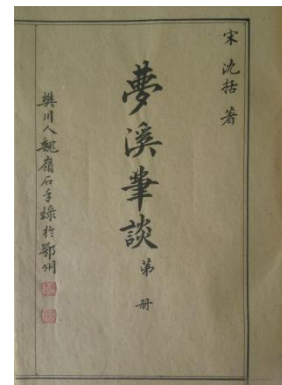 宋 沈括 著
夢溪筆談 第 册
樊川人魏嶺石手録於鄂州